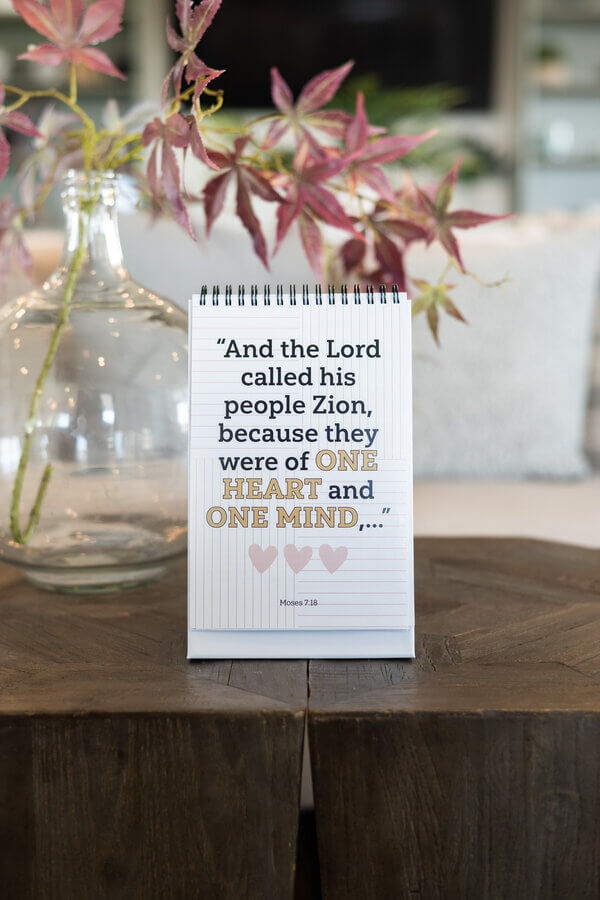 “And the Lord
called his
people Zion,
because they
were of ONE
HEART and
ONE MIND,...”
Moses 7:18